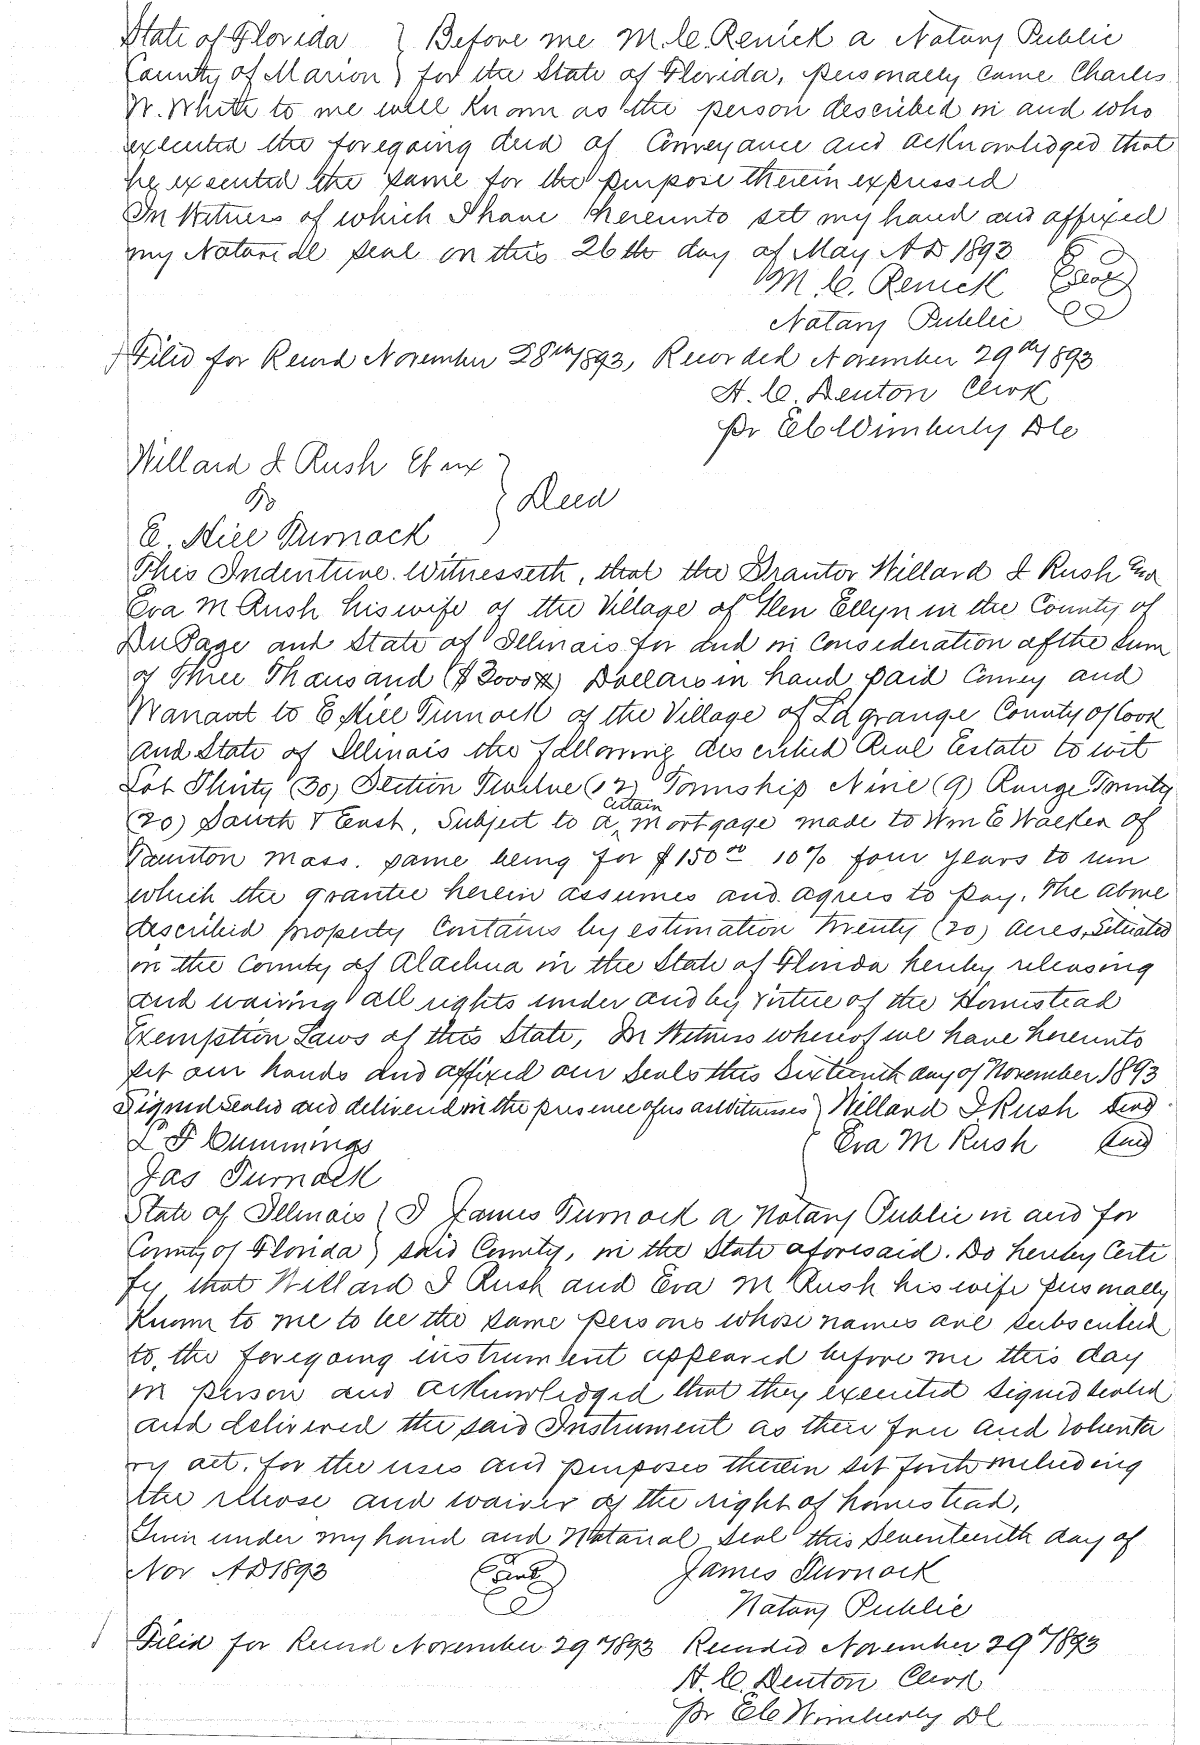 State of Florida } Before me M. C. Renick a Notary Public
County of Marion } for the State of Florida, personally came Charles
W. White to me well known as the person described in and who
executed the foregoing deed of Conveyance and acknowledged that
he executed the same for the purpose therein expressed
In Witness of which I have hereunto set my hand and affixed
my Notarial seal on this 26th day of May AD 1893
M. C. Renick Seal
Notary Public
Filed for Record November 28th 1893, Recorded November 29th 1893
H. C. Denton Clerk
pr E C Wimberly DC
Willard I Rush Et ux
To } Deed
E. Hill Turnock
This Indenture Witnesseth, that the Grantor Willard I Rush and
Eva M Rush his wife of the Village of Glen Ellyn in the County of
DuPage and State of Illinois for and in Consideration of the Sum
of Three Thousand ($3000) Dollars in hand paid Convey and
Warrant to E Hill Turnock of the Village of Lagrange County of Cook
and State of Illinois the following described Real Estate to wit
Lot Thirty (30) Section Twelve (12) Township Nine (9) Range Twenty
(20) South & East, Subject to a certain mortgage made to Wm E Walker of
Taunton Mass. same being for $150 00 10% four years to run
which the grantee herein assumes and agrees to pay. The above
described property Contains by estimation twenty (20) acres, Situated
in the County of Alachua in the State of Florida hereby releasing
and waiving all rights under and by virtue of the Homestead
Exemption Laws of this State, In Witness whereof we have hereunto
set our hands and affixed our Seals this Sixteenth day of November 1893
Signed Sealed and delivered in the presence of us as Witnesses } Willard I. Rush Seal
L F Cummings } Eva M Rush Seal
Jas Turnock
State of Illinois } I James Turnock a Notary Public in and for
County of Florida } said County, in the State aforesaid. Do hereby Certi
fy that Willard I Rush and Eva M Rush his wife personally
Known to me to be the same persons whose names are subscribed
to, the foregoing instrument appeared before me this day
in person and acknowledged that they executed signed sealed
and delivered the said Instrument as their free and volunta
ry act, for the uses and purposes therein set forth including
the release and waiver of the right of homestead,
Given under my hand and Notarial Seal this Seventeenth day of
Nov AD 1893 Seal James Turnock
Notary Public
Filed for Record November 29th 1893 Recorded November 29th 1893
H. C. Denton Clerk
pr E C Wimberly DC